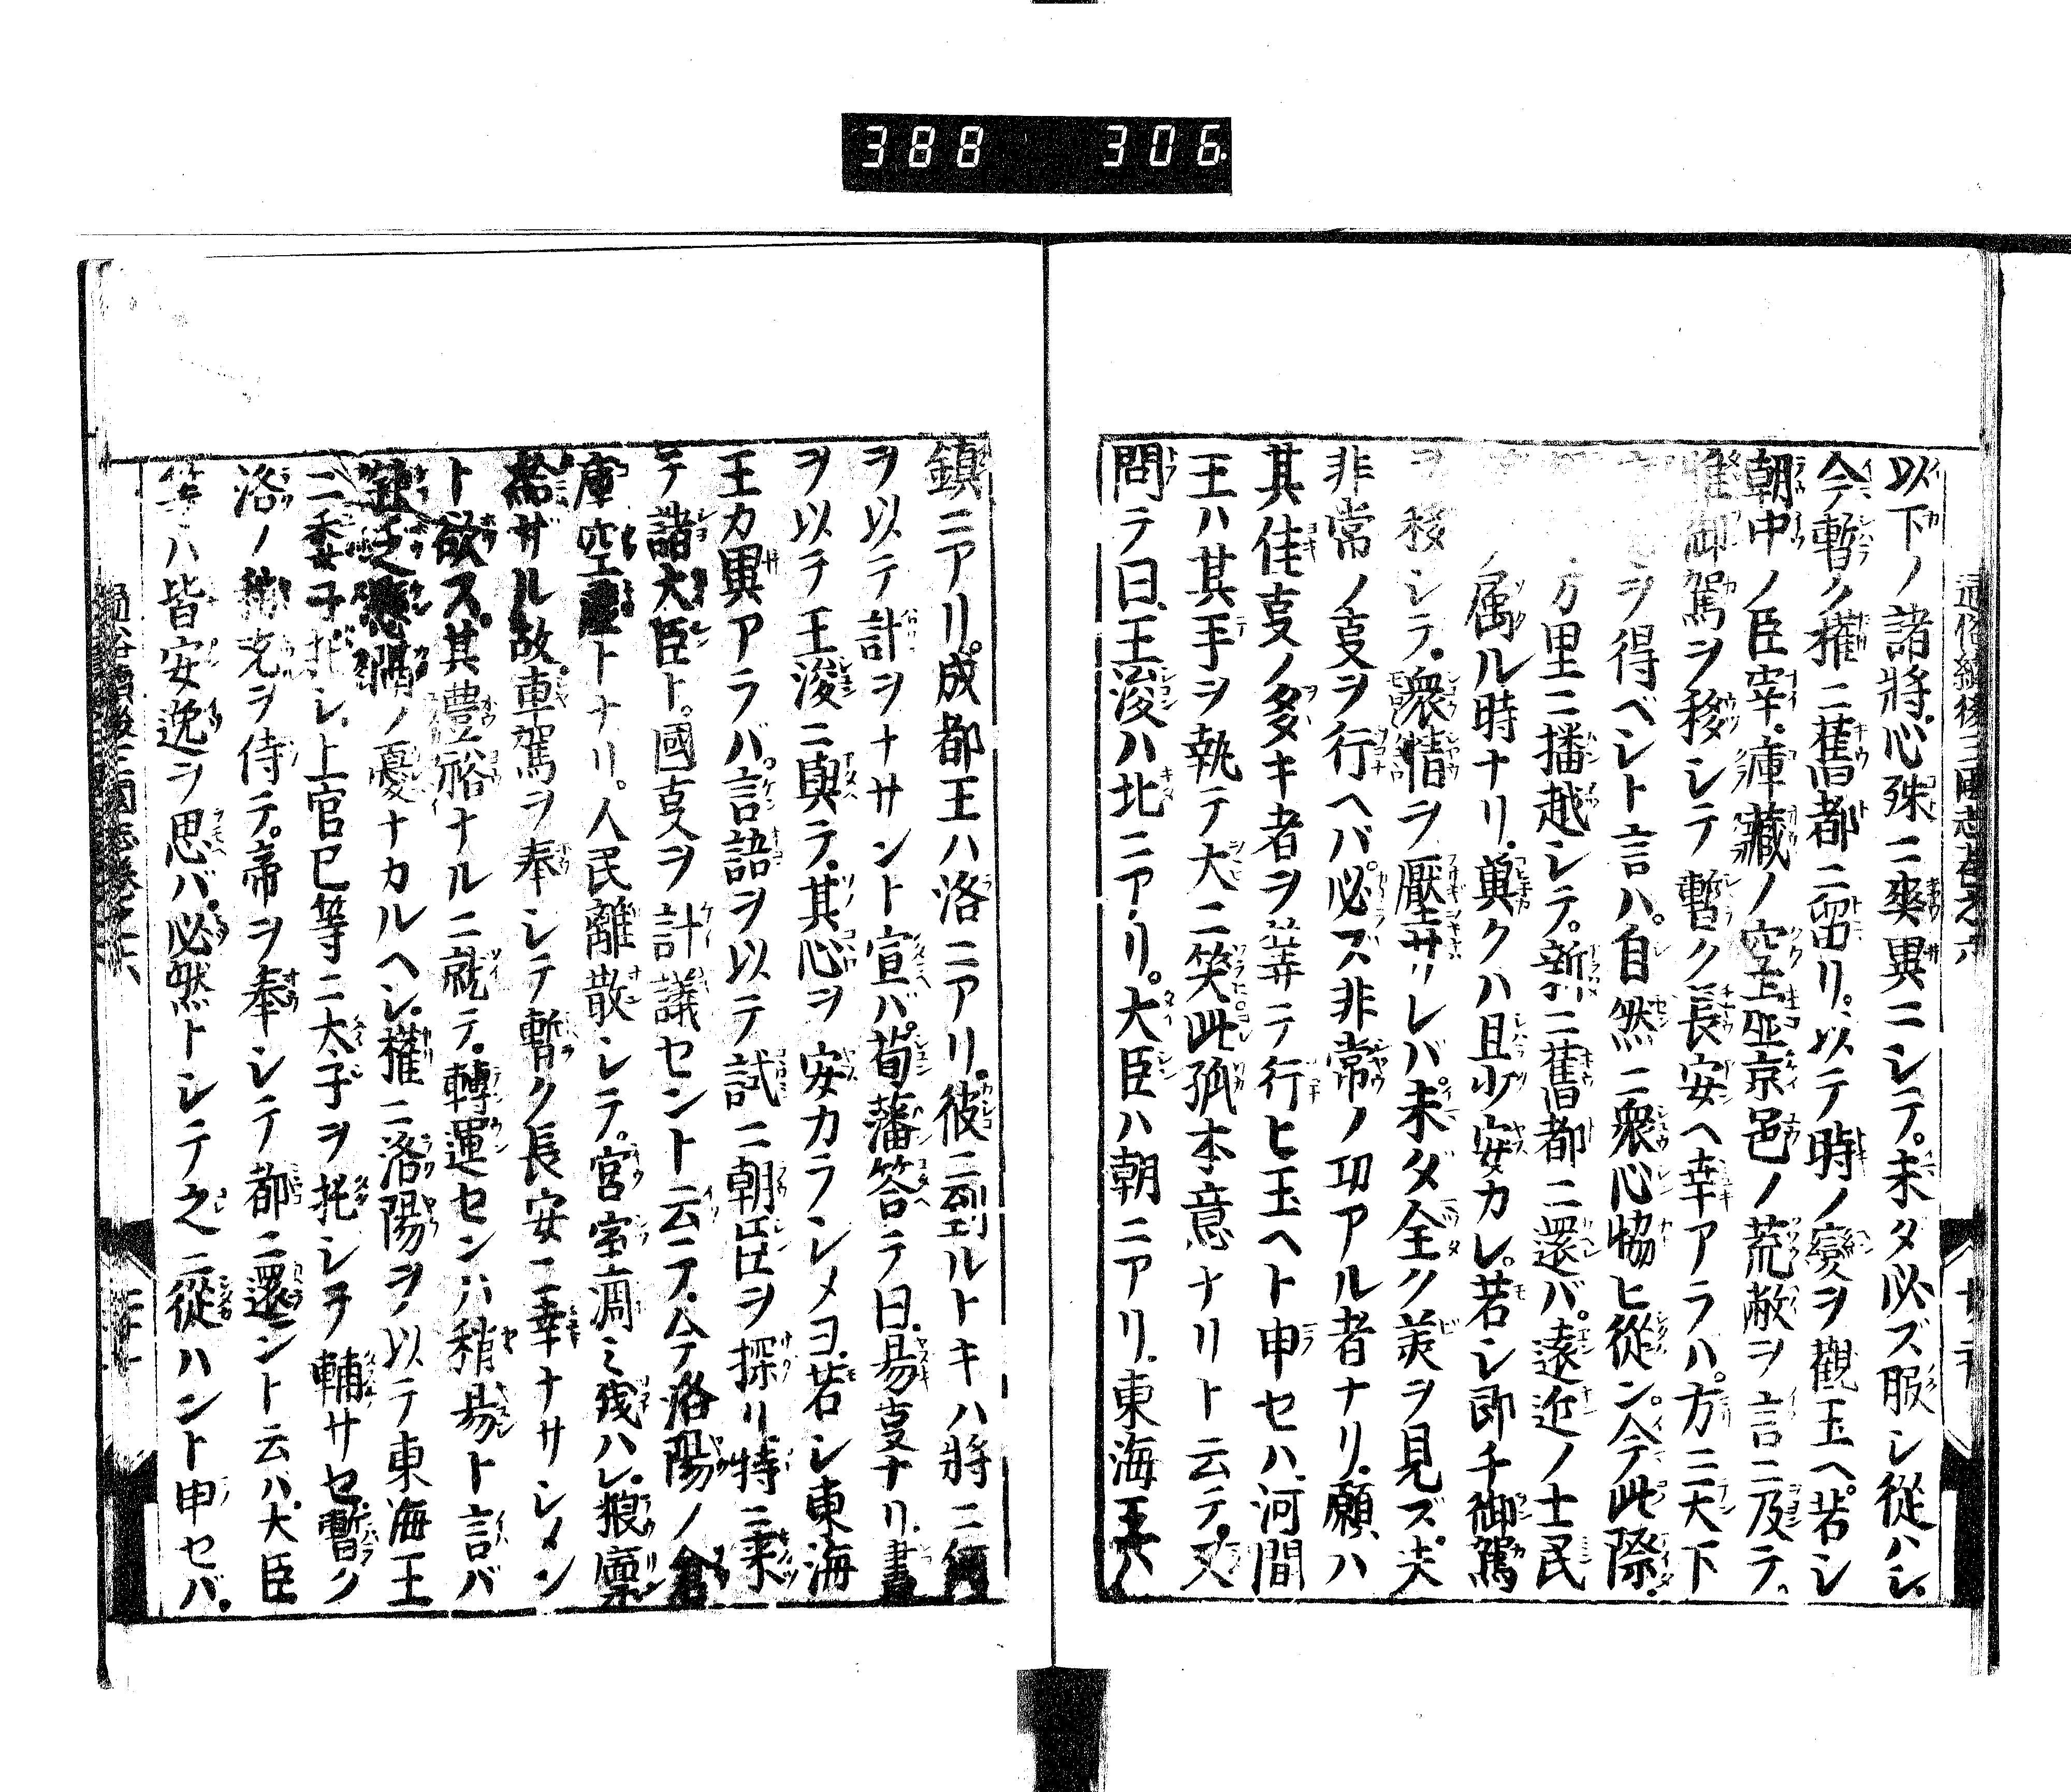 388 306
以下ノ諸將心殊ニ奭異ニシテ。未タ必ズ服シ從ハシ。
今暫ク權ニ舊都ニ畄リ。以テ時ノ變ヲ觀玉ヘ。若シ
朝中ノ臣宰。庫藏ノ空京邑ノ荒敝ヲ言ニ及テ。
御駕ヲ移シテ暫ク長安ヘ幸アラハ。方ニ大下
ヲ得ベシト言ハ。自然ニ衆心協ヒ從ン。今此際。
方里ニ播越シテ。新ニ舊都ニ還バ。遠近ノ士民
ノ属ル時ナリ。冀クハ且少安カレ。若シ即チ御駕
ヲ移シテ。衆情ヲ壓サレバ未ダ全ク美ヲ見ズ。夫
非常ノ叓ヲ行ヘバ必ズ非常ノ功アル者ナリ。願ハ
其佳叓ノ多キ者ヲ筭テ行ヒ玉ヘト申セハ。河間
王ハ其手ヲ執テ大ニ笑此孤本意ナリト云テ。又
問テ曰。王浚ハ北ニアリ。大臣ハ朝ニアリ。東海王ハ
鎮ニアリ。成都王ハ洛ニアリ。彼ニ到ルトキハ將ニ何
ヲ以テ計ヲナサント宣バ。荀藩答テ曰。易叓ナリ。書
ヲ以テ王浚ニ與ヲ。其心ヲ安カラシメヨ。若シ東海
王カ異アラバ。言語ヲ以テ試ニ朝臣ヲ探リ特ニ来
テ諸大臣ト。國叓ヲ計議セント云ニア。今洛陽ノ倉
庫空トナリ。人民離散シテ。宮室凋ミ残ハレ。粮廩
ザル故車駕ヲ奉シテ暫ク長安ニ幸ナサシメン
ト欲ス。其豊裕ナルニ就テ。轉運センハ稍易ト言バ
乏ノ憂ナカルヘシ。權ニ洛陽ヲ以テ東海王
ニ委子托シ。上官巳等ニ太子ヲ托シヲ輔サセ。暫ク
洛ノ ヲ侍テ。帝ヲ奉シテ都ニ還ント云バ。大臣
等ハ皆安逸ヲ思バ。必然トシテ之ニ從ハント申セバ。